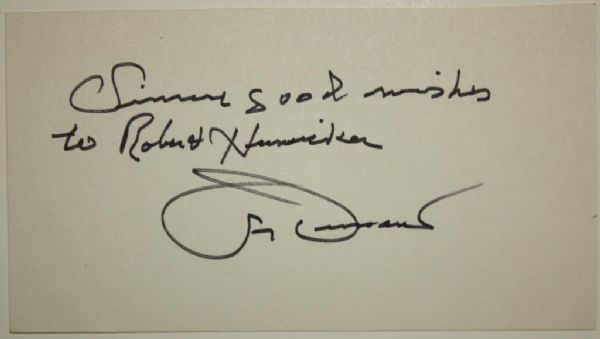 Sincere good wishes
to Robert Hunsicker